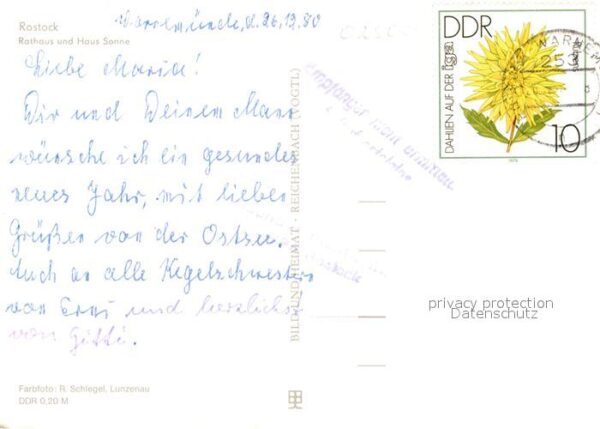 Rostock
Rathaus und Haus Sonne
Warnemünde, d. 26.12.80
Liebe Maria!
Dir und Deinem Mann
wünsche ich ein gesundes
neues Jahr, mit lieben
Grüßen von der Ostsee.
Auch an alle Kegelschwestern
von Erni und herzlichst
von Gitti.
Farbfoto: R. Schlegel, Lunzenau
DDR 0,20 M
BILD UND HEIMAT · REICHENBACH (VOGTL)
Empfänger nicht
DDR
DAHLIEN AUF DER iga
10
1979
WARNEM
253
privacy protection
Datenschutz